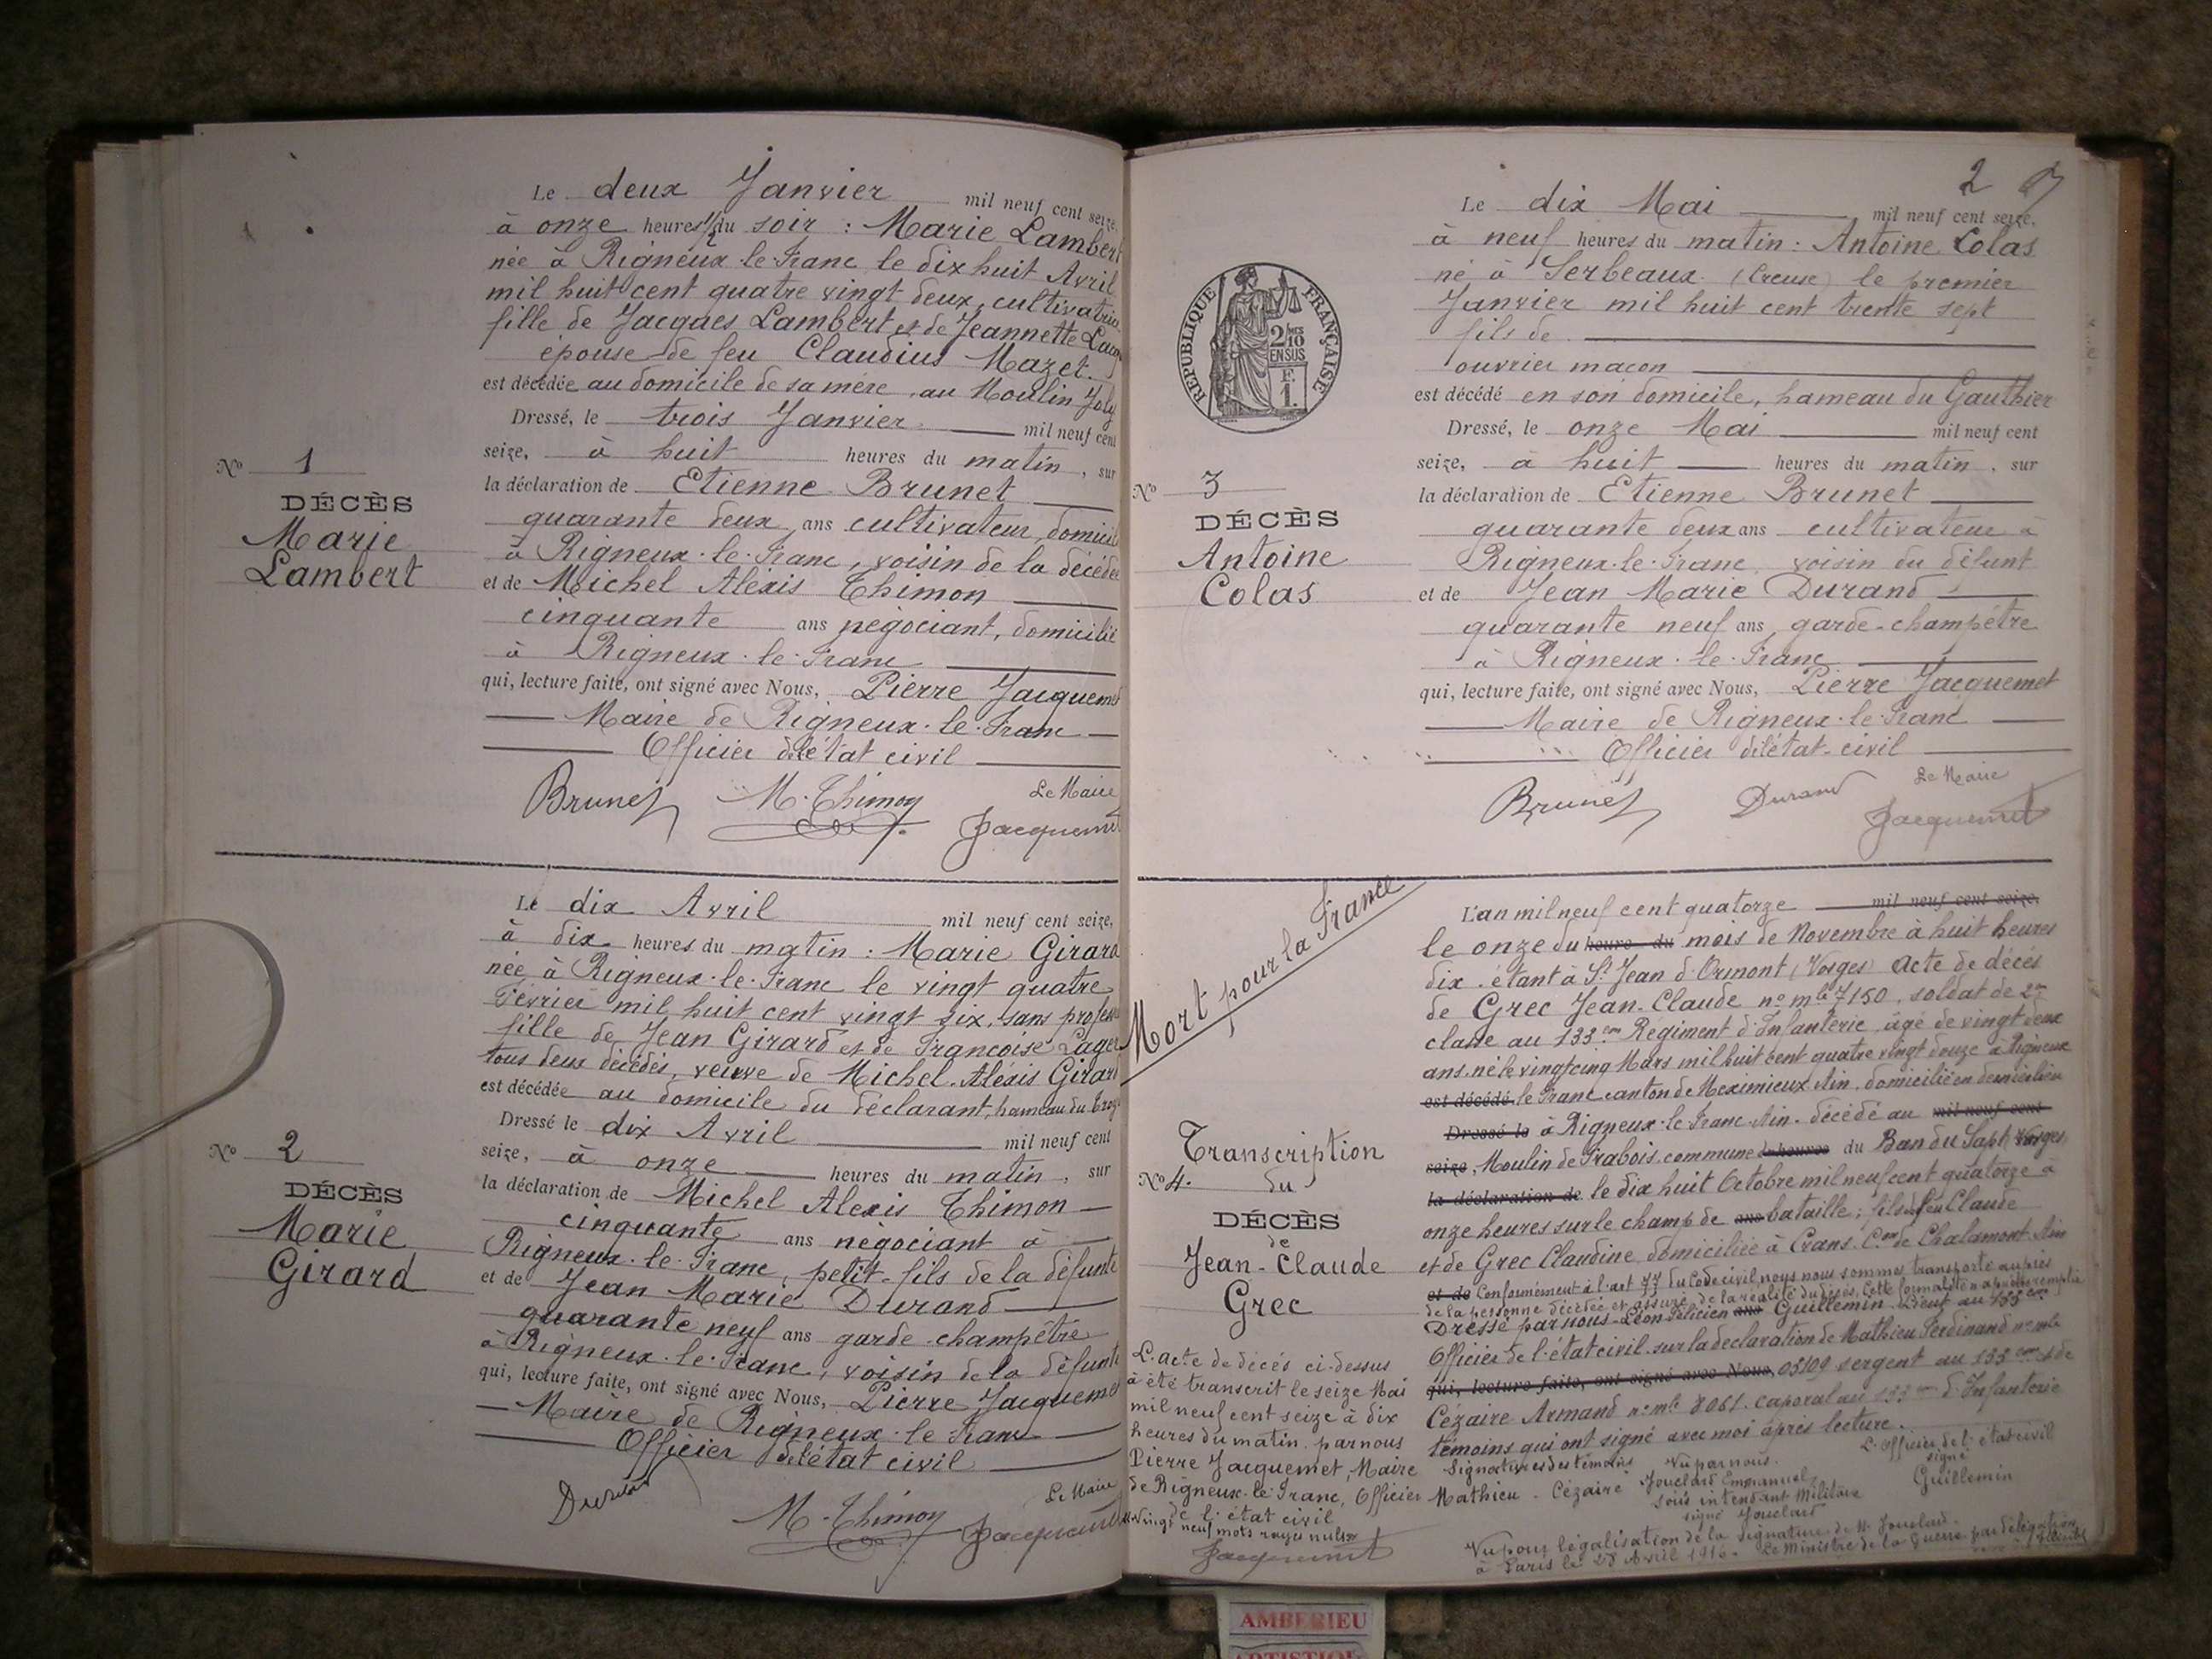 Le deux Janvier mil neuf cent seize,
à onze heures 1/2 du soir : Marie Lambert
née à Rigneux-le-Franc le dix huit Avril
mil huit cent quatre vingt deux, cultivatrice
fille de Jacques Lambert et de Jeannette
épouse de feu Claudius Mazet.
est décédée au domicile de sa mère, au Moulin Joly
Dressé, le trois Janvier mil neuf cent
seize, à huit heures du matin, sur
la déclaration de Etienne Brunet
quarante deux ans cultivateur, domicilié
à Rigneux-le-Franc, voisin de la décédée
et de Michel Alexis Thimon
cinquante ans négociant, domicilié
à Rigneux-le-Franc
qui, lecture faite, ont signé avec Nous, Pierre Jacquemet
Maire de Rigneux-le-Franc
Officier de l'état civil
Brunet M. Thimon Le Maire
Jacquemet
No 1
DÉCÈS
Marie
Lambert
Le dix Avril mil neuf cent seize,
à dix heures du matin : Marie Girard
née à Rigneux-le-Franc le vingt quatre
Février mil huit cent vingt six, sans profession
fille de Jean Girard et de Françoise
tous deux décédés, veuve de Michel-Alexis Girard
est décédée au domicile du déclarant, hameau du
Dressé le dix Avril mil neuf cent
seize, à onze heures du matin, sur
la déclaration de Michel Alexis Thimon
cinquante ans négociant à
Rigneux-le-Franc, petit-fils de la défunte
et de Jean Marie Durand
quarante neuf ans garde-champêtre
à Rigneux-le-Franc, voisin de la défunte
qui, lecture faite, ont signé avec Nous, Pierre Jacquemet
Maire de Rigneux-le-Franc
Officier de l'état civil
Durand M. Thimon Le Maire
Jacquemet
No 2
DÉCÈS
Marie
Girard
2
Le dix Mai mil neuf cent seize,
à neuf heures du matin : Antoine Colas
né à Serbeaux (Creuse) le premier
Janvier mil huit cent trente sept
fils de
ouvrier maçon
est décédé en son domicile, hameau du Gauthier
Dressé, le onze Mai mil neuf cent
seize, à huit heures du matin, sur
la déclaration de Etienne Brunet
quarante deux ans cultivateur à
Rigneux-le-Franc, voisin du défunt
et de Jean Marie Durand
quarante neuf ans, garde-champêtre
à Rigneux-le-Franc
qui, lecture faite, ont signé avec Nous, Pierre Jacquemet
Maire de Rigneux-le-Franc
Officier de l'état-civil
Brunet Durand Le Maire
Jacquemet
RÉPUBLIQUE FRANÇAISE
2/10
EN SUS
F.
1.
No 3
DÉCÈS
Antoine
Colas
Mort pour la France
Transcription
No 4. du
DÉCÈS
de
Jean-Claude
Grec
L'acte de décès ci-dessus
à été transcrit le seize Mai
mil neuf cent seize à dix
heures du matin, par nous
Pierre Jacquemet, Maire
de Rigneux-le-Franc, Officier
de l'état civil
Vingt neuf mots rayés nuls
Jacquemet
L'an mil neuf cent quatorze mil neuf cent seize,
le onze du heure du mois de Novembre à huit heures
dix, étant à St Jean d'Ormont (Vosges) Acte de décès
de Grec Jean-Claude no mle 7150, soldat de 2me
classe au 133em Régiment d'Infanterie, âgé de vingt deux
ans, né le vingt cinq Mars mil huit cent quatre vingt douze à Rigneux
est décédé le Franc canton de Meximieux Ain, domicilié en dernier lieu
Dressé le à Rigneux-le-Franc-Ain. décédé au mil neuf cent
seize, Moulin de Frabois, commune heures du Ban du Sapt Vosges
la déclaration de le dix huit Octobre mil neuf cent quatorze à
onze heures sur le champ de ans bataille; fils de feu Claude
et de Grec Claudine domiciliée à Crans. Con de Chalamont Ain
et de Conformément à l'art 77 du Code civil, nous nous sommes transporté auprès
de la personne décédée et assuré de la réalité du décès, Cette formalité remplie
Dressé par nous Léon Félicien ans Guillemin, Lieut au 133em
Officier de l'état civil, sur la déclaration de Mathieu Ferdinand no mle
qui, lecture faite, ont signé avec Nous, 05109 sergent au 133em et de
Cézaire Armand no mle 8061, caporal au 133em d'Infanterie
témoins qui ont signé avec moi après lecture.
Signatures des témoins Vu par nous L'Officier de l'état civil
Mathieu - Cézaire Jouclard Emmanuel signé
sous intendant Militaire Guillemin
signé Jouclard
Vu pour légalisation de la signature de M. Jouclard
à Paris le 28 Avril 1916. Le Ministre de la Guerre par délégation
AMBERIEU